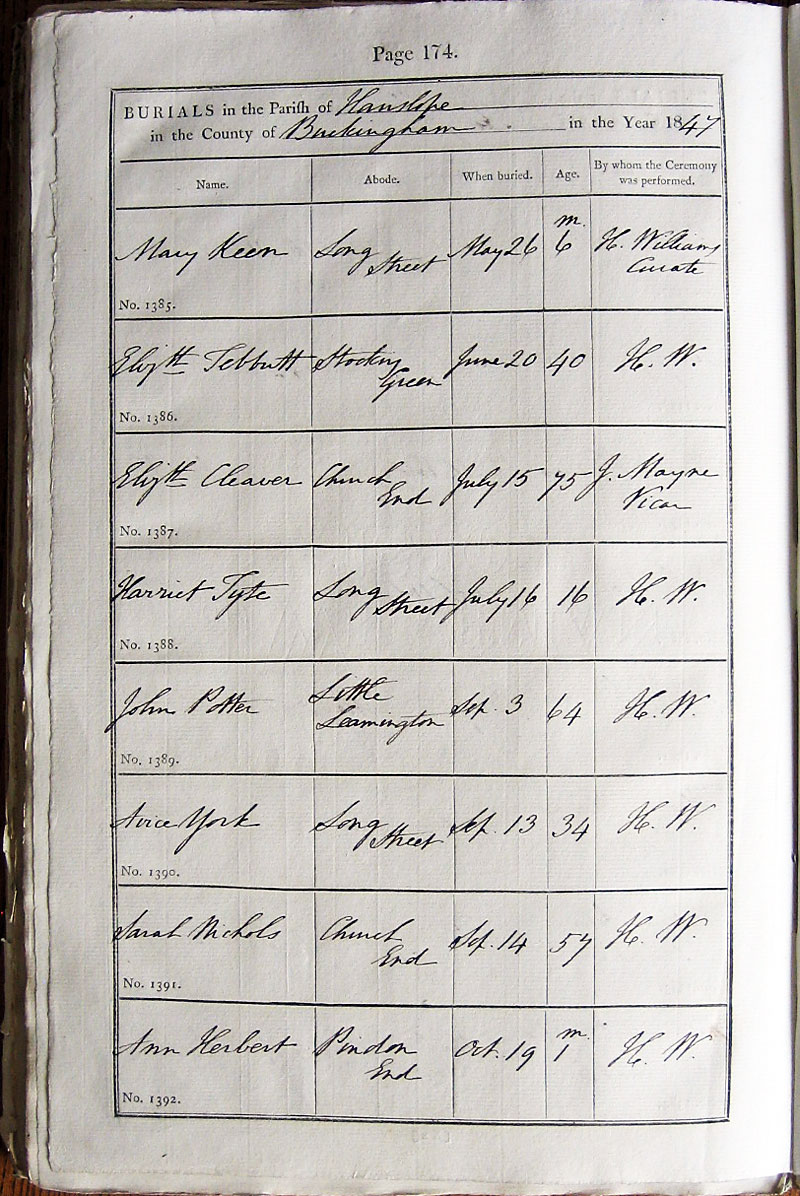 Page 174.
BURIALS in the Pariſh of Hanslope
in the County of Buckingham in the Year 1847
Name. Abode. When buried. Age. By whom the Ceremony was performed.
Mary Keen Long Street May 26 m. 6 H. Williams Curate
No. 1385.
Elizth Tebbutt Stocking Green June 20 40 H. W.
No. 1386.
Elizth Cleaver Church End July 15 75 J. Mayne Vicar
No. 1387.
Harriet Tyte Long Street July 16 16 H. W.
No. 1388.
John Potter Little Leamington Sep. 3 64 H. W.
No. 1389.
Avice York Long Street Sep. 13 34 H. W.
No. 1390.
Sarah Nichols Church End Sep. 14 57 H. W.
No. 1391.
Ann Herbert Pindon End Oct. 19 m. 1 H. W.
No. 1392.